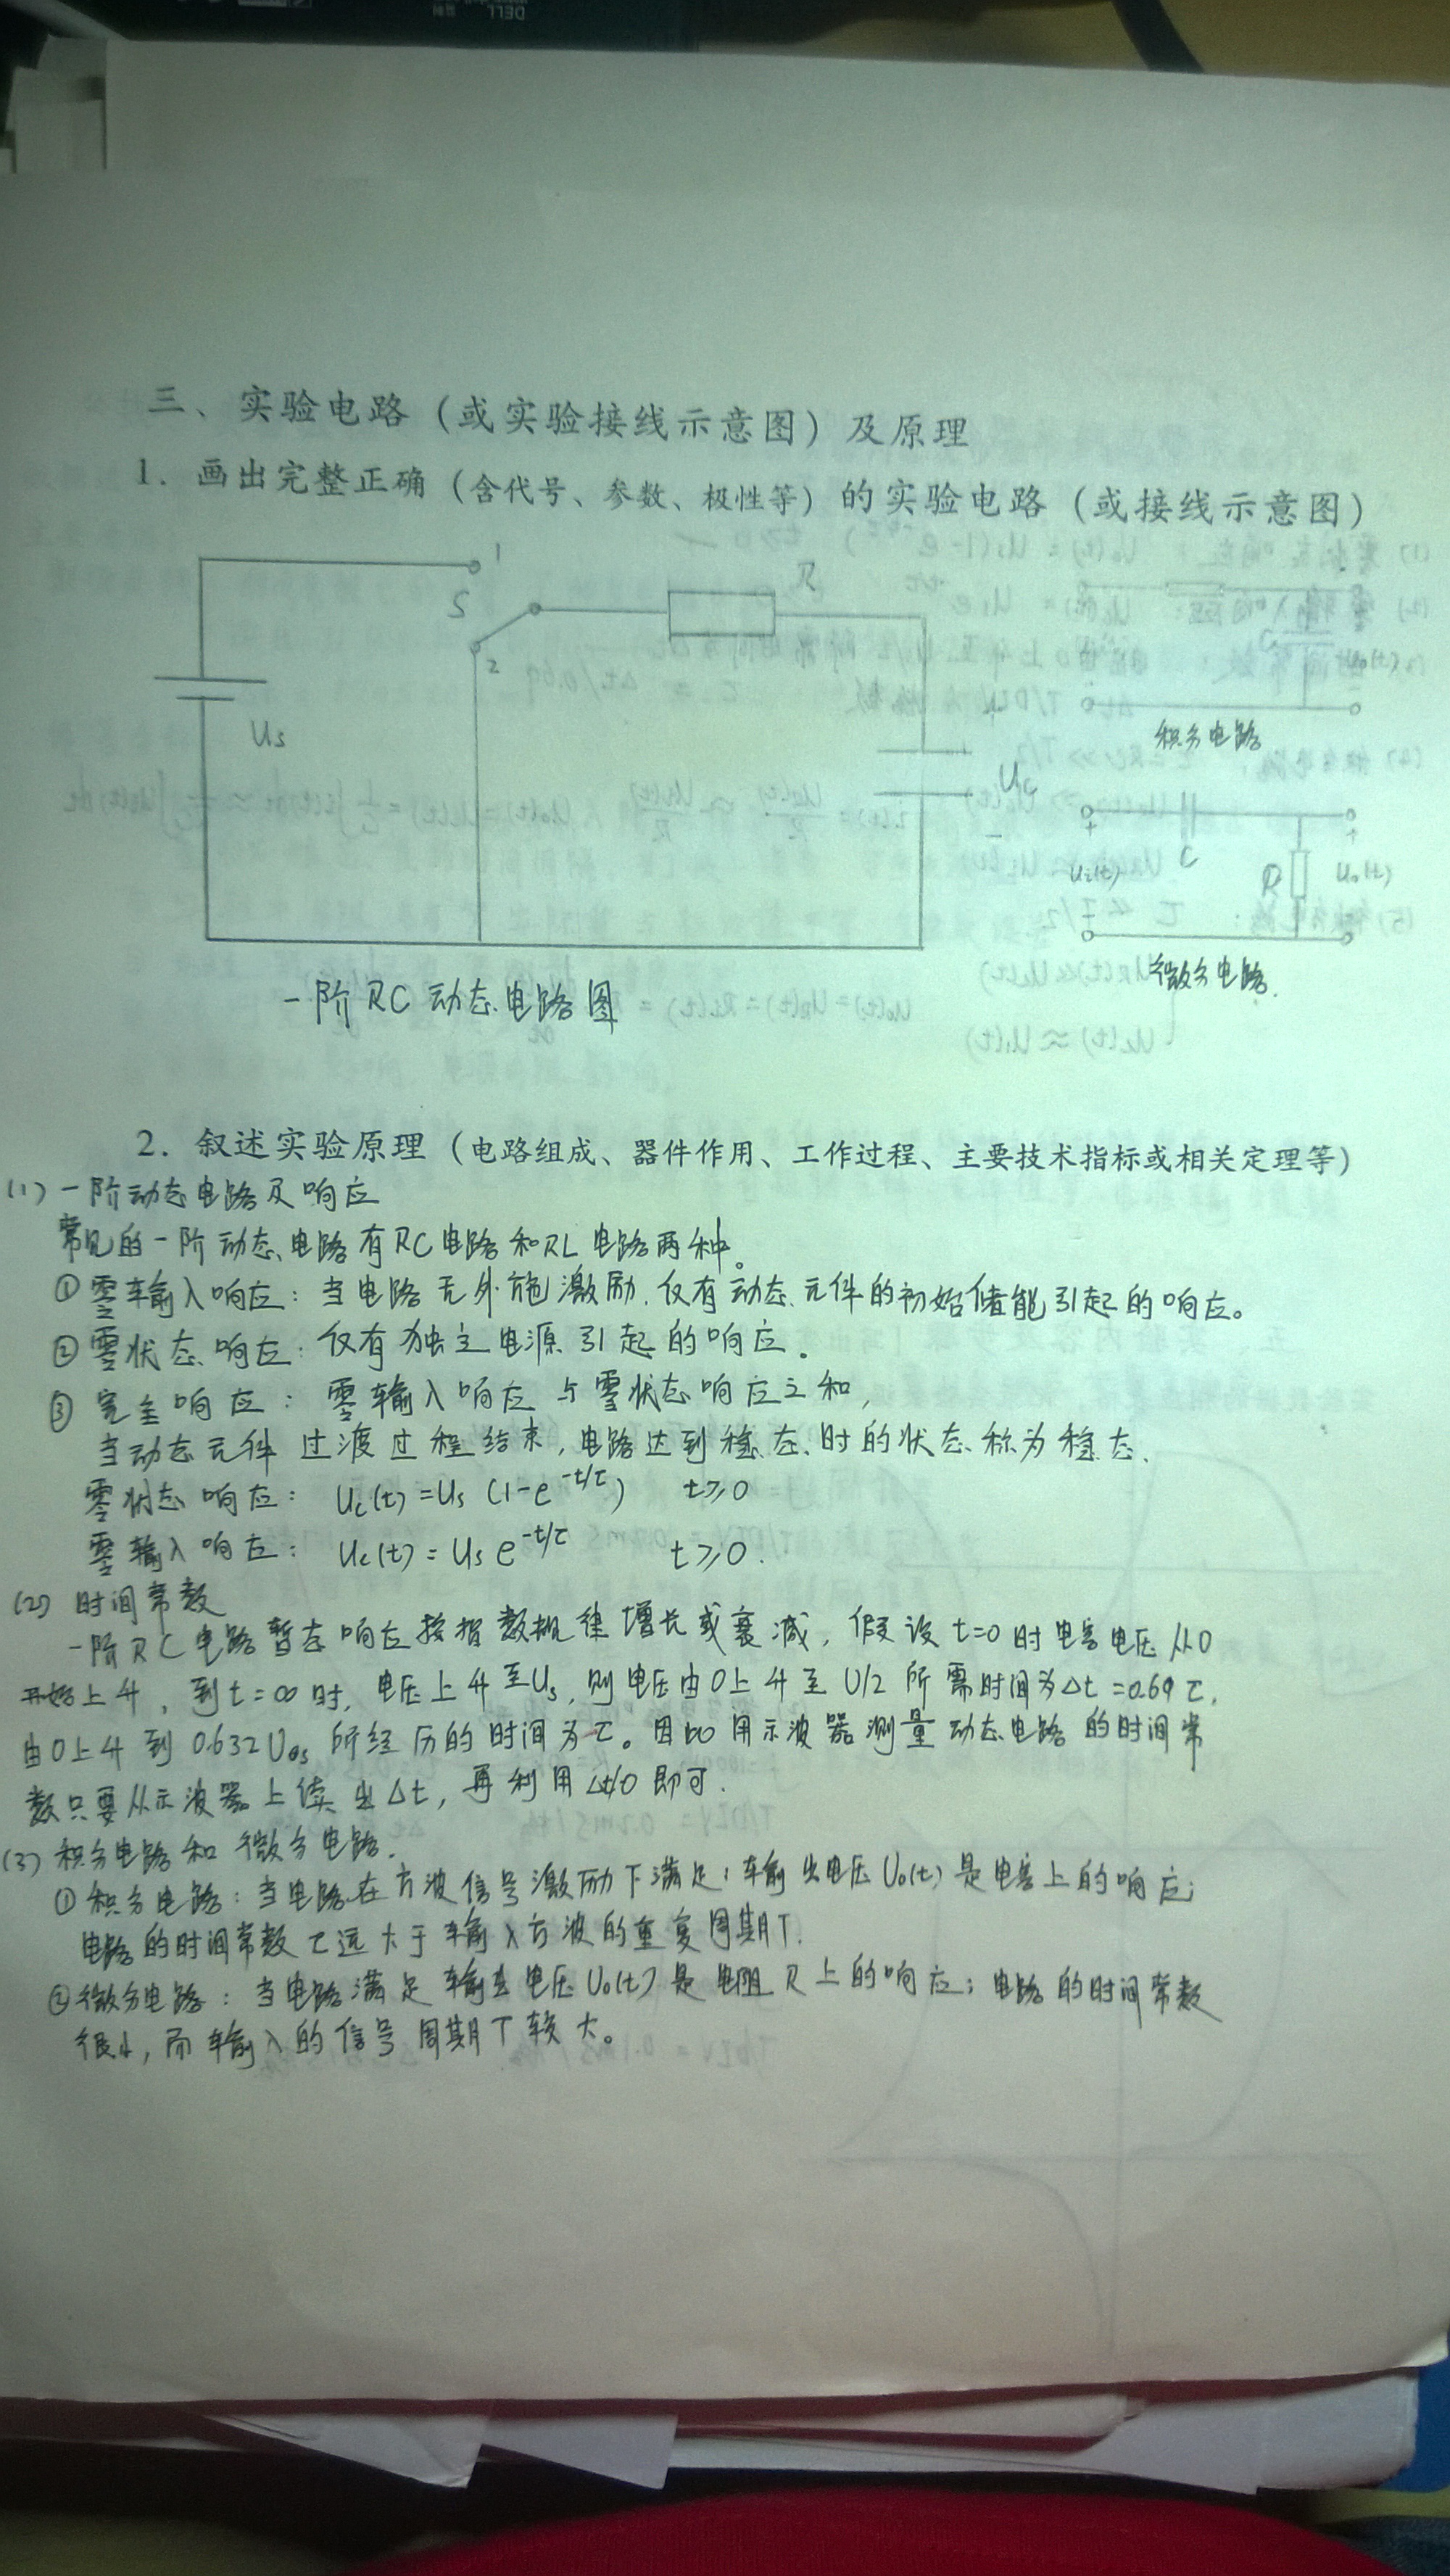 三、实验电路（或实验接线示意图）及原理
1. 画出完整正确（含代号、参数、极性等）的实验电路（或接线示意图）
1
S
2
R
Us
+
Uc
-
C
Uo(t)
积分电路
+
Ui(t)
-
C
R
+
Uo(t)
-
微分电路.
一阶RC动态电路图
2. 叙述实验原理（电路组成、器件作用、工作过程、主要技术指标或相关定理等）
(1) 一阶动态电路及响应
常见的一阶动态电路有RC电路和RL电路两种。
① 零输入响应：当电路无外施激励，仅有动态元件的初始储能引起的响应。
② 零状态响应：仅有独立电源引起的响应.
③ 完全响应：零输入响应与零状态响应之和,
当动态元件过渡过程结束，电路达到稳态时的状态称为稳态.
零状态响应： Uc(t)=Us(1-e^-t/τ) t≥0
零输入响应： Uc(t)=Us e^-t/τ t≥0.
(2) 时间常数
一阶RC电路暂态响应按指数规律增长或衰减，假设t=0时电容电压从0
开始上升，到t=∞时，电压上升至Us，则电压由0上升至U/2所需时间为Δt=0.69τ,
由0上升到0.632Us所经历的时间为τ。因此用示波器测量动态电路的时间常
数只要从示波器上读出Δt，再利用即可.
(3) 积分电路和微分电路.
① 积分电路：当电路在方波信号激励下满足：输出电压Uo(t)是电容上的响应；
电路的时间常数τ远大于输入方波的重复周期T.
② 微分电路：当电路满足输出电压Uo(t)是电阻R上的响应；电路的时间常数
很小，而输入的信号周期T较大。
DELL